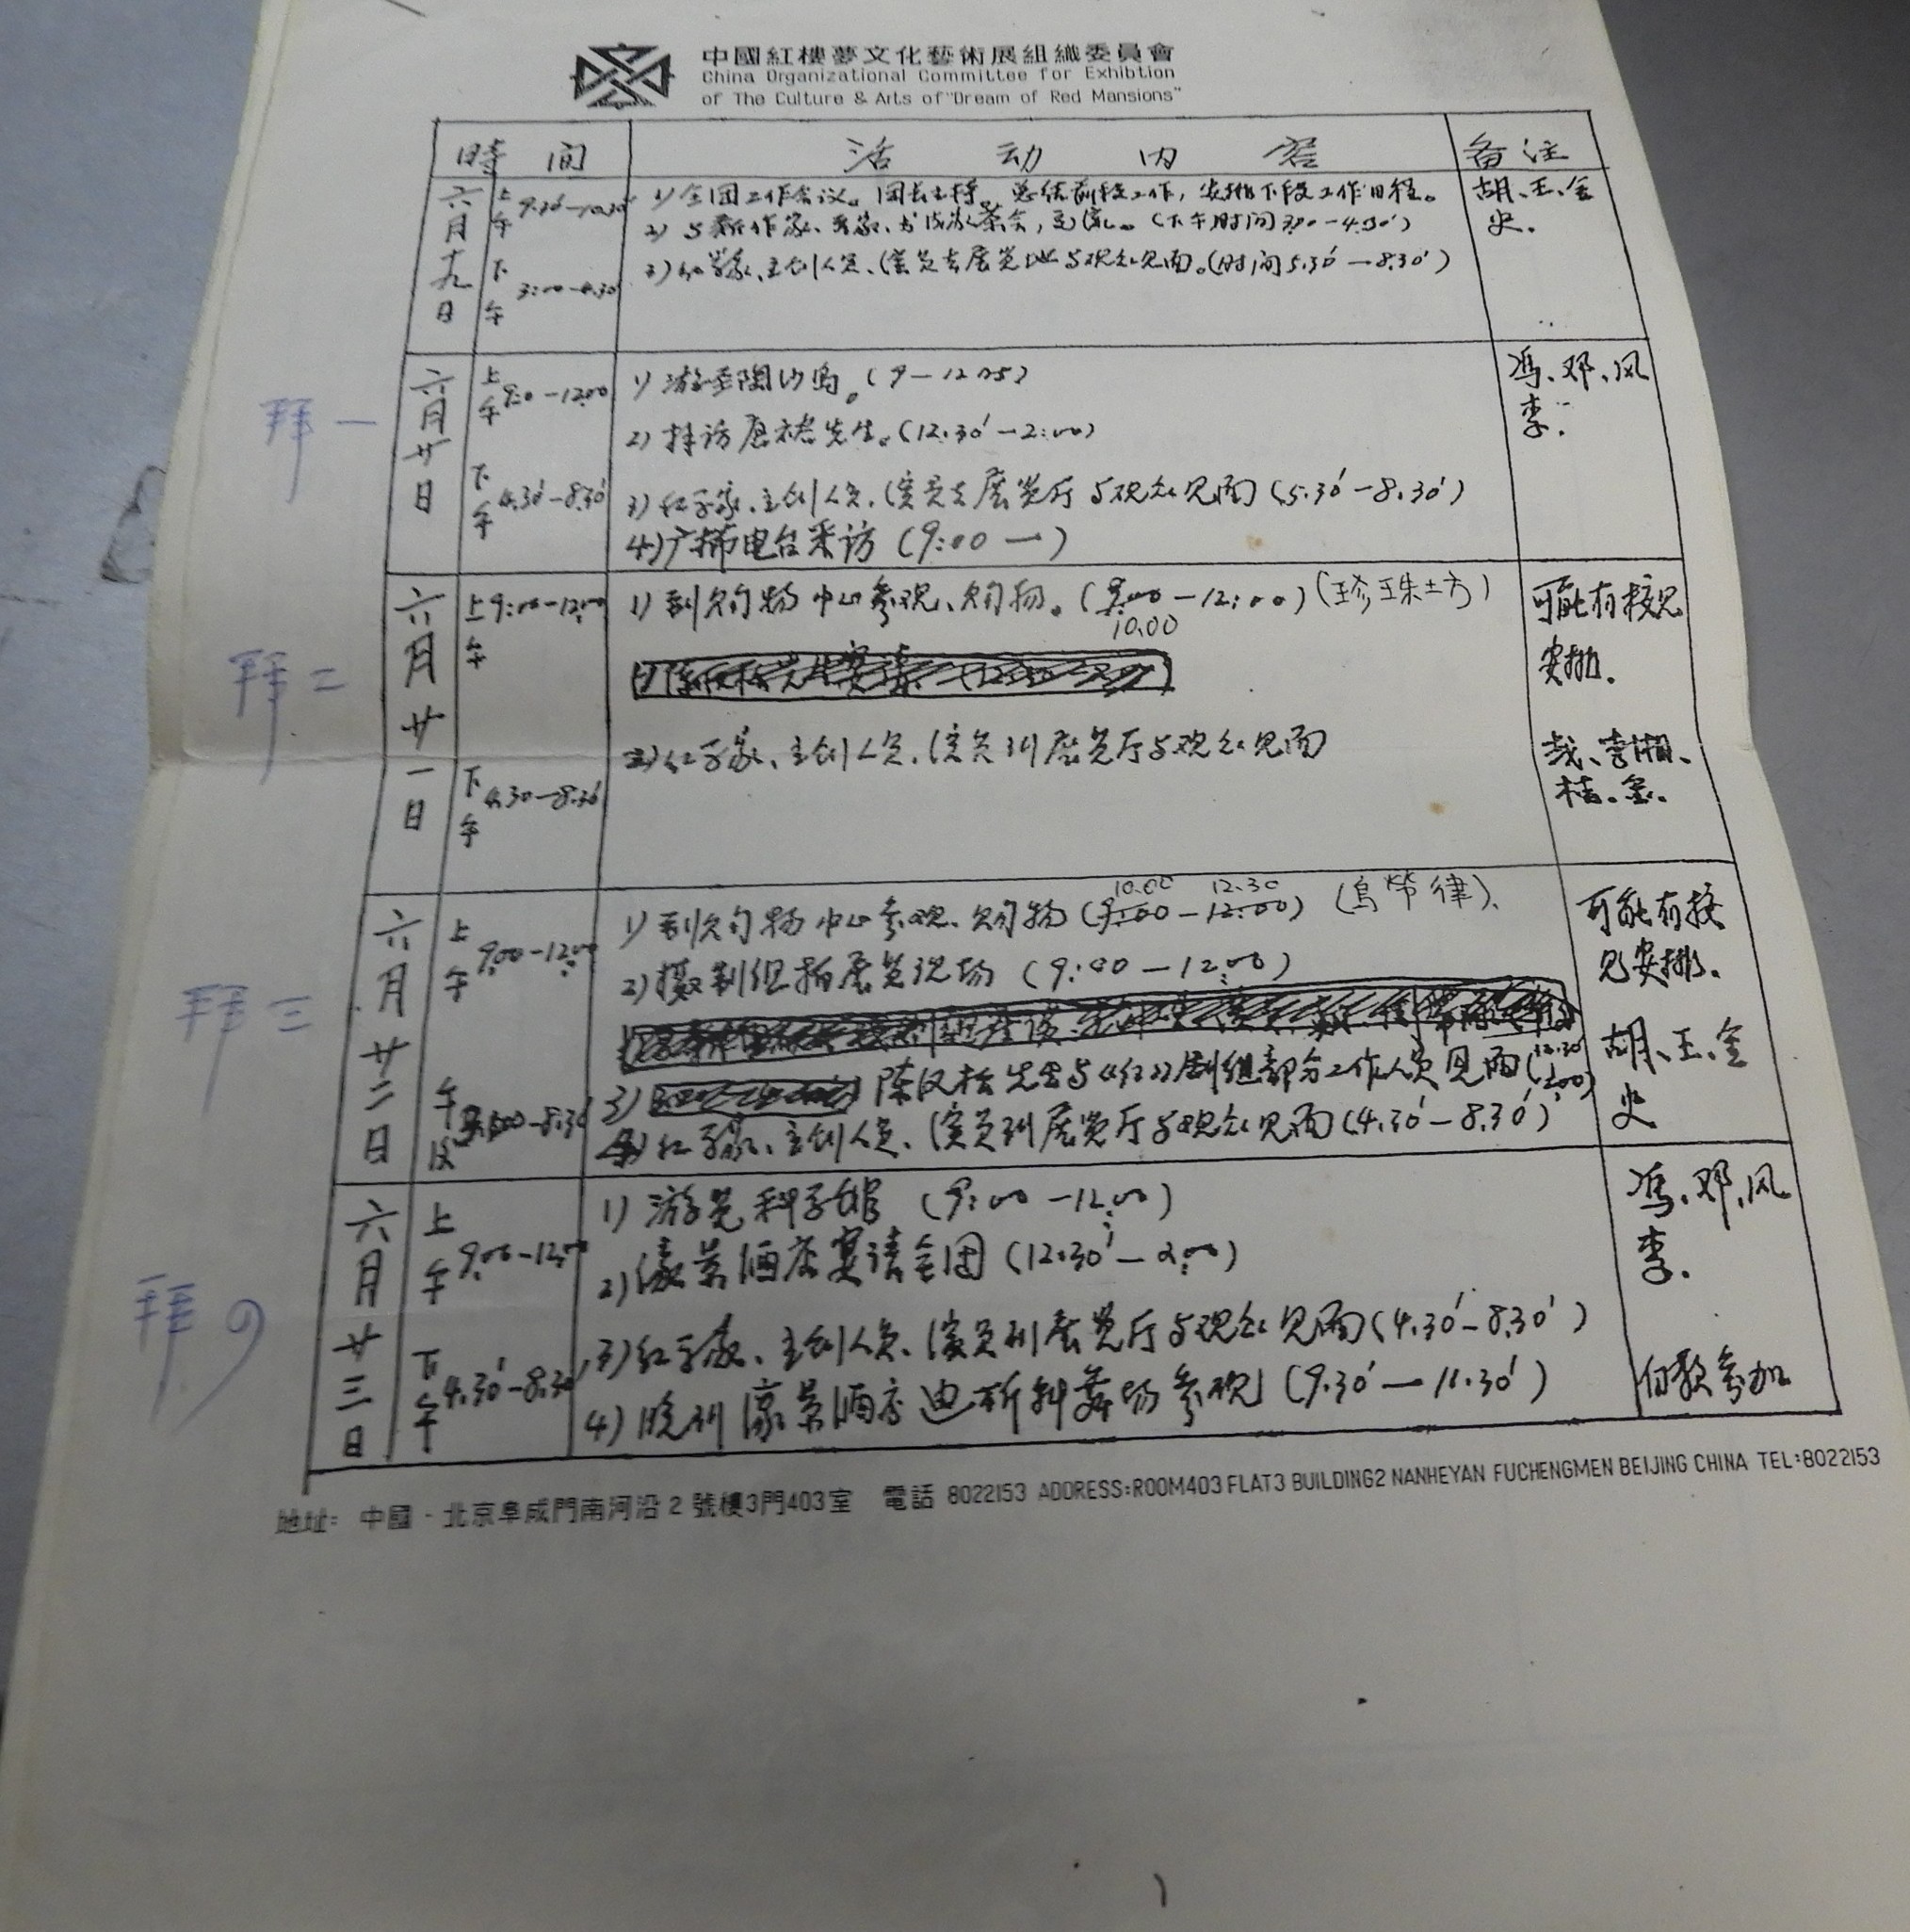 中國紅樓夢文化藝術展組織委員會
China Organizational Committee for Exhibtion
of The Culture & Arts of "Dream of Red Mansions"
時間 活动内容 备注
六月十九日
上午 9:30-10:30
下午 3:00-4:30
1) 全团工作会议。团长主持。总结前段工作,安排下段工作日程。
2) 与新作家、茶会,交流。(下午时间3:00-4:30')
3) 红学家、主创人员、演员去展览地与观众见面。(时间5.30'-8.30')
胡、王、金
史.
拜一
六月廿日
上午 9:0-12:00
下午 4.30'-8.30'
1) 游圣陶沙岛。(9-12:05)
2) 拜访先生。(12.30'-2:00)
3) 红学家、主创人员、演员去展览厅与观众见面(5.30'-8.30')
4) 广播电台采访 (9:00—)
冯、邓、风
李.
拜二
六月廿一日
上午 9:00-12:00
下午 4.30-8.30'
1) 到购物中心参观、购物。(9:00-12:00) (珍珠土方)
10.00
红学家、主创人员、演员到展览厅与观众见面
可能有接见
安排.
李湘、
桔.金.
拜三
六月廿二日
上午 9:00-12:00
午后 -8.30
10.00 12.30
1) 到购物中心参观、购物 (9:00-12:00) (乌节律)、
2) 摄制组拍展览现场 (9:00-12:00)
3) 陈汉松先生与《红》剧组部分工作人员见面(12.30'
红学家、主创人员、演员到展览厅与观众见面(4.30'-8.30')
可能有接
见安排.
胡、王、金
史
拜四
六月廿三日
上午 9:00-12:00
下午 4.30'-8.30'
1) 游览科学馆 (9:00-12:00)
2) 豪景酒店宴请全团 (12.30'-2:00)
3) 红学家、主创人员、演员到展览厅与观众见面(4.30'-8.30')
4) 晚到豪景酒店迪斯科舞场参观 (9.30'-11.30')
冯、邓、风
李.
参加
地址: 中國·北京阜成門南河沿2號樓3門403室 電話 8022153 ADDRESS:ROOM403 FLAT3 BUILDING2 NANHEYAN FUCHENGMEN BEIJING CHINA TEL:8022153